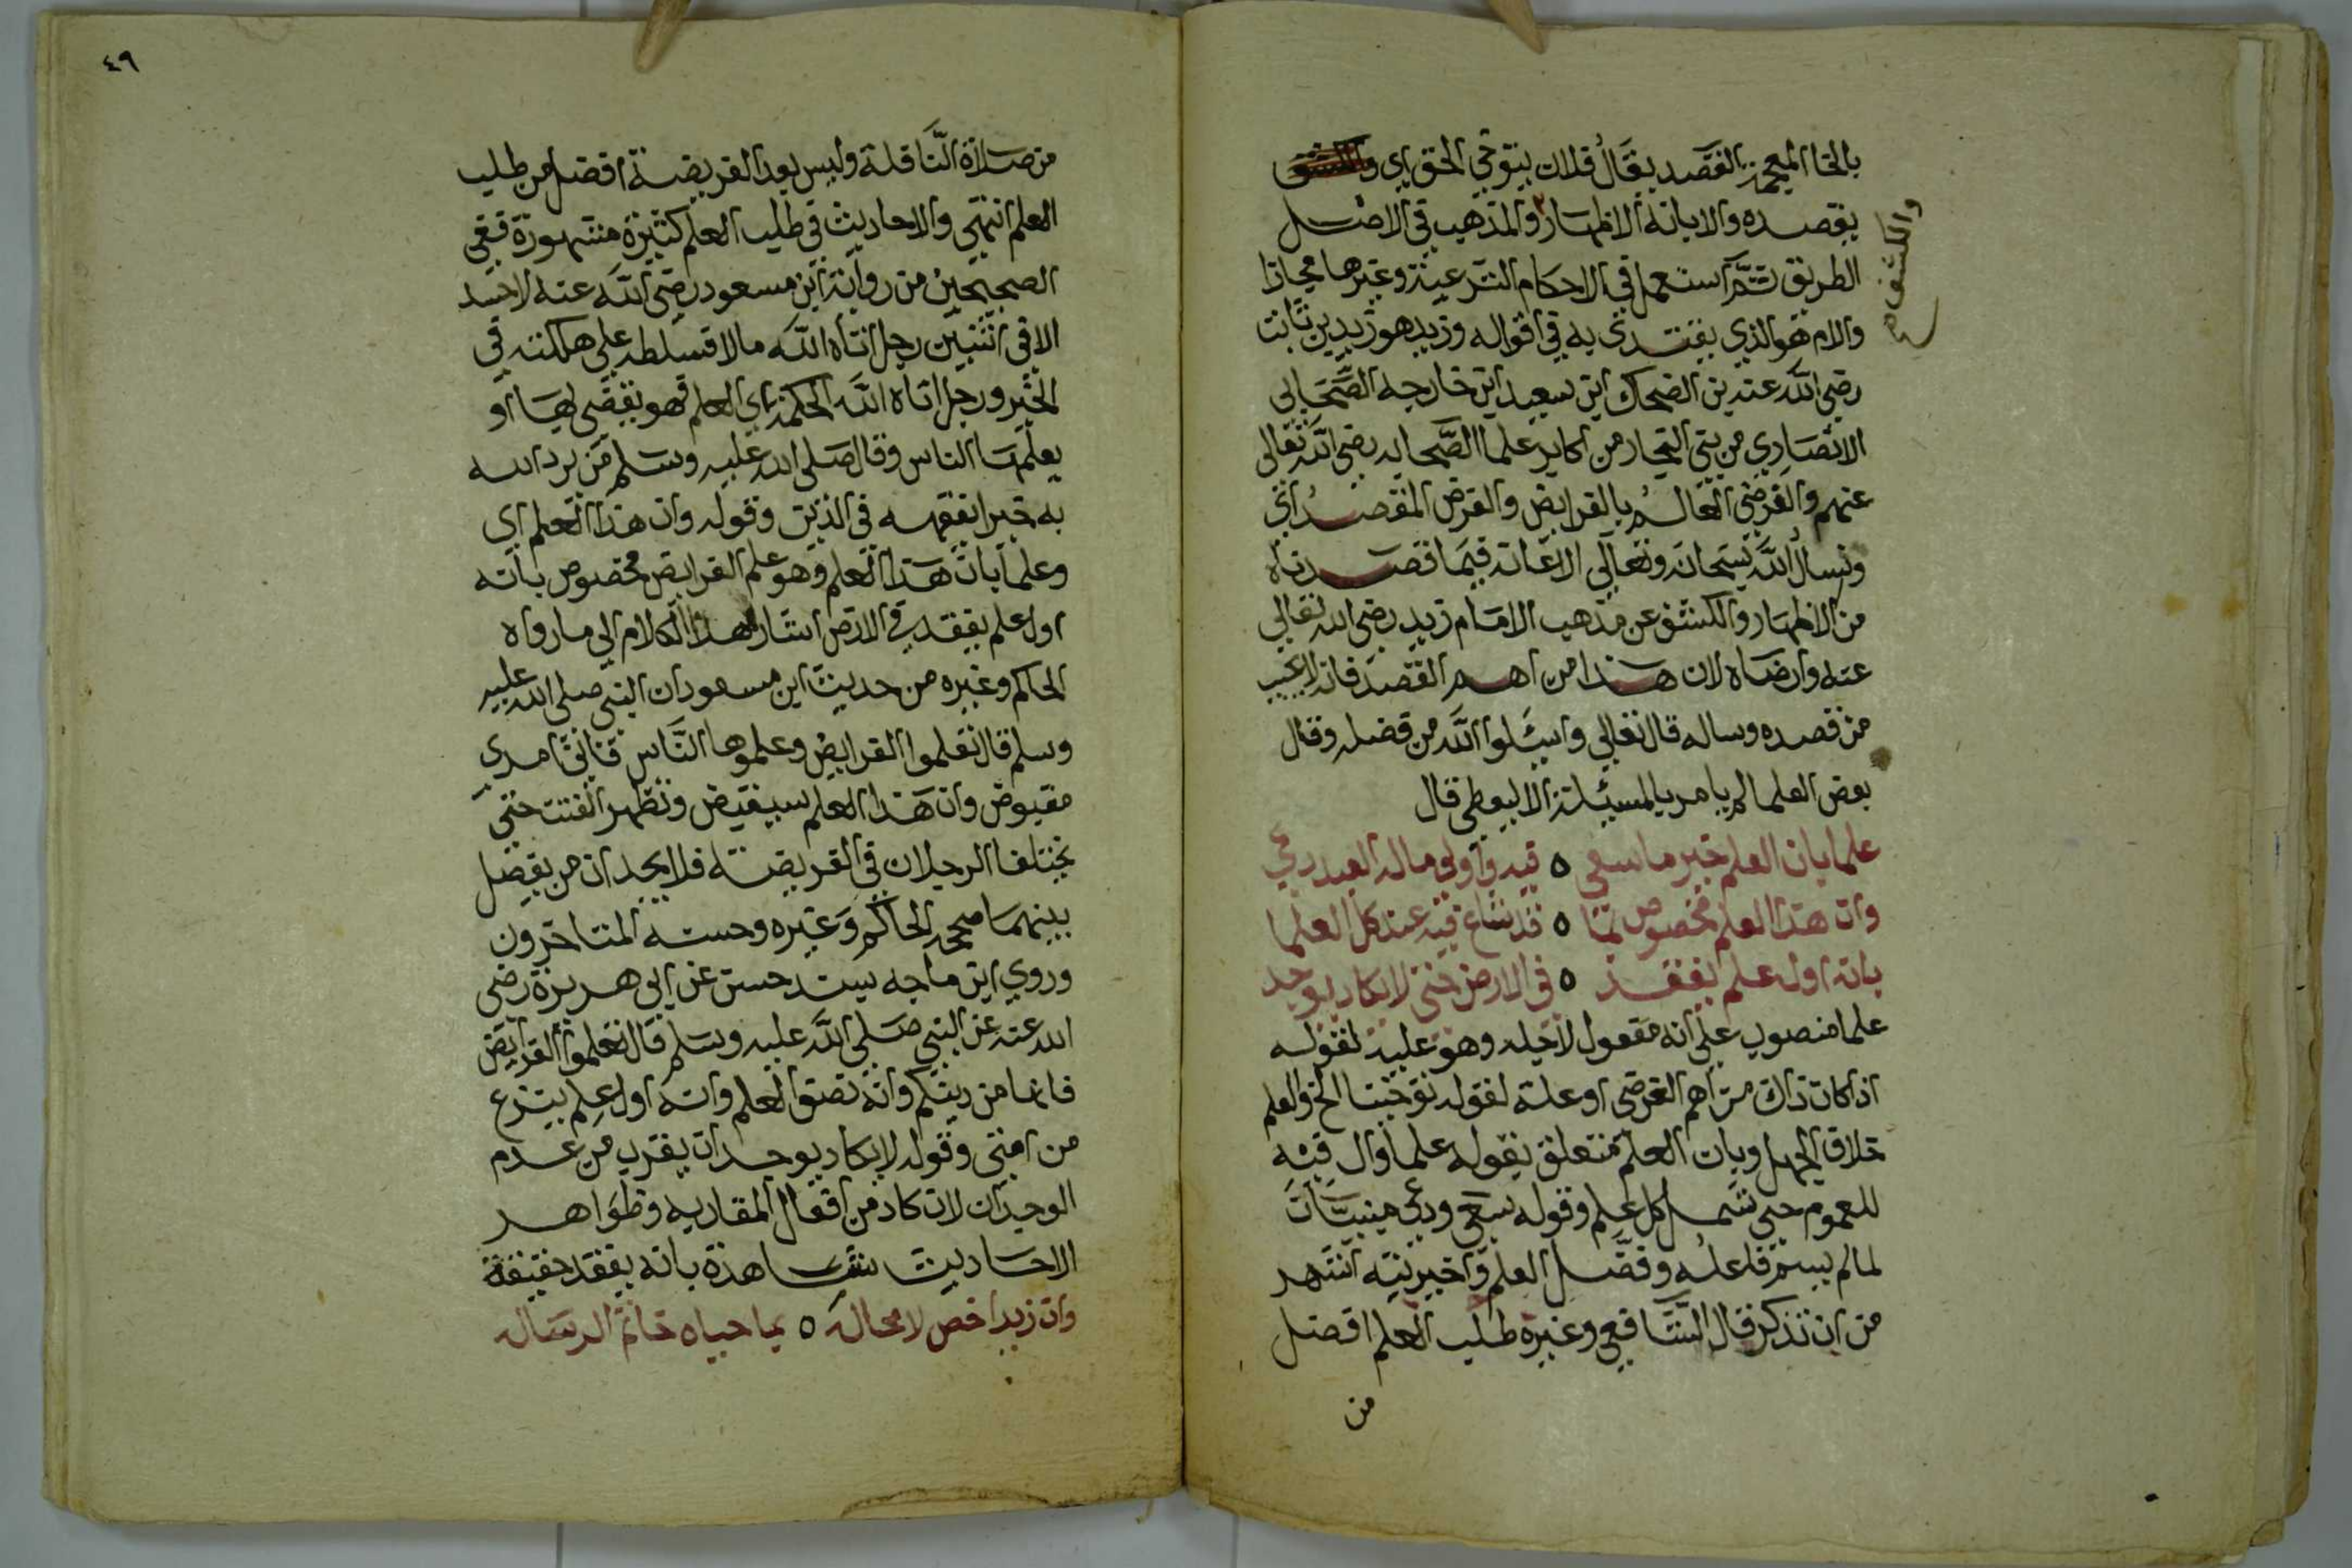 بالخا المعجمة القصد يقال فلان يتوخي الحق اي
يقصده والابانة الاظهار والمذهب في الاصل
والكشف صح
الطريق ثم استعمل في الاحكام الشرعية وغيرها مجازا
والامام هو الذي يقتدي به في اقواله وزيد هو زيد بن ثابت
رضي الله عنه بن الضحاك ابن سعيد ابن خارجه الصحابي
الانصاري من بني النجار من اكابر علما الصحابه رضي الله تعالى
عنهم والفرضي العالم بالفرايض والفرض المقصد اي
ونسال الله سبحانه وتعالي الاعانه فيما قصدناه
من الاظهار والكشف عن مذهب الامام زيد رضي الله تعالي
عنه وارضاه لان هذا من اهم القصد فانه لا يخيب
من قصده وساله قال تعالي واسئلوا الله من فضله وقال
بعض العلما لم يامر بالمسئلة الا ليعطي قال
علما بان العلم خير ما سعي ه فيه واولي ماله العبد دعي
وان هذا العلم مخصوص بما ه قد شاع فيه عند كل العلما
بانه اول علم يفقد ه في الارض حتي لا يكاد يوجد
علما منصوب علي انه مفعول لاجله وهو عليه لقوله
اذ كان ذاك من اهم الغرض او علة لقوله توخينا الخ والعلم
خلاف الجهل وبان العلم متعلق بقوله علما وال فيه
للعموم حتي شمل كل علم وقوله سعي ودعي مبنيان
لما لم يسم فاعله وفضل العلم واخيريته اشهر
من ان تذكر قال الشافعي وغيره طلب العلم افضل
من
٤٩
من صلاة النافلة وليس بعد الفريضة افضل من طلب
العلم انتهي والاحاديث في طلب العلم كثيرة مشهورة ففي
الصحيحين من رواية ابن مسعود رضي الله عنه لا حسد
الا في اثنين رجل اتاه الله مالا فسلطه علي هلكته في
الخير ورجل اتاه الله الحكمة اي العلم فهو يقضي بها او
يعلمها الناس وقال صلى الله عليه وسلم من يرد الله
به خيرا يفقهه في الدين وقوله وان هذا العلم اي
وعلما بان هذا العلم وهو علم الفرايض مخصوص بانه
اول علم يفقد في الارض اشار بهذا الكلام الي ما رواه
الحاكم وغيره من حديث ابن مسعود ان النبي صلى الله عليه
وسلم قال تعلموا الفرايض وعلموها الناس فاني امرئ
مقبوض وان هذا العلم سيقبض وتظهر الفتن حتي
يختلف الرجلان في الفريضة فلا يجدان من يفصل
بينهما صححه الحاكم وغيره وحسنه المتاخرون
وروي ابن ماجه بسند حسن عن ابي هريرة رضي
الله عنه عن النبي صلى الله عليه وسلم قال تعلموا الفرايض
فانها من دينكم وانه نصف العلم وانه اول علم ينزع
من امتي وقوله لا يكاد يوجد اي يقرب من عدم
الوجدان لان كاد من افعال المقاربه وظواهر
الاحاديث شاهدة بانه يفقد حقيقة
وان زيدا خص لا محاله ه بما حباه خاتم الرساله